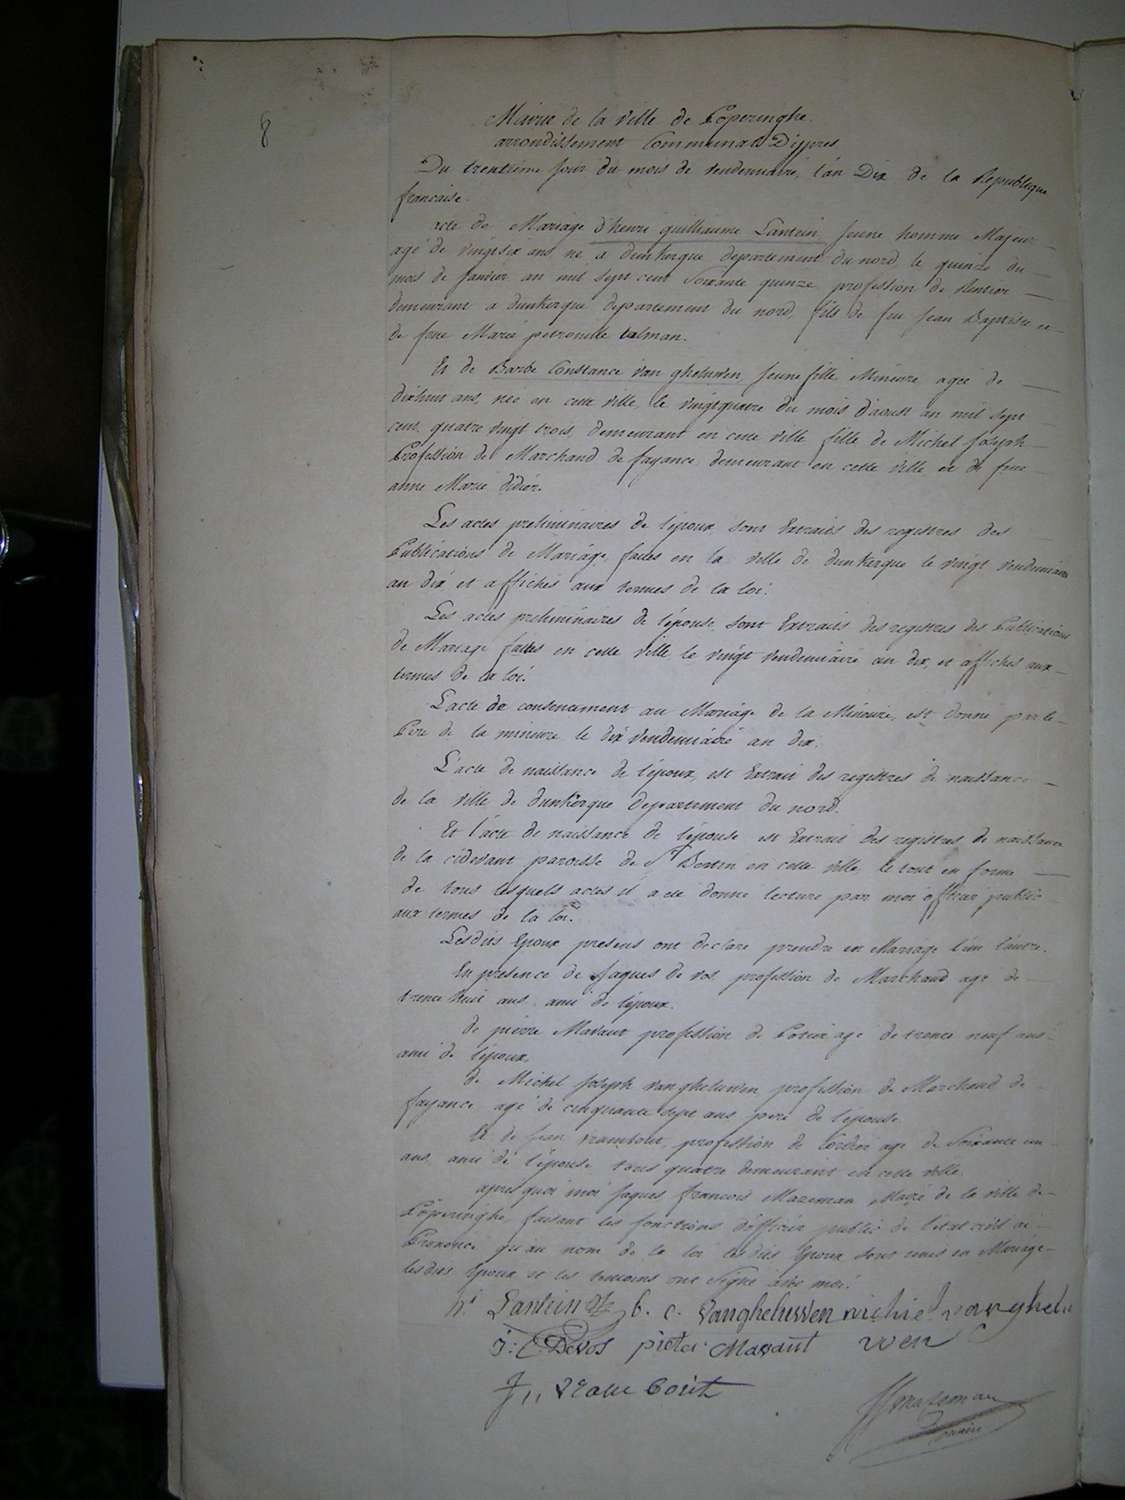 8
Mairie de la ville de Poperinghe.
arrondissement Communal D'ijpres
Du trentieme jour du mois de vendemiaire, l'an Dix de la Republique
francaise.
acte de Mariage d'henri guilliaume Lantein jeune homme Majeur
agé de vingtsix ans né a dunkerque departement du nord, le quinze du
mois de janvier an mil sept cent soixante quinze profession de Rentier
demeurant a dunkerque departement du nord, fils de feu jean Baptiste et
de feue Marie petronille talman.
Et de Barbe Constance van gheluwen jeune fille Mineure, agée de
dixhuit ans, née en cette ville, le vingtquatre du mois d'aoust an mil sept
cent quatre vingt trois, demeurant en cette ville fille de Michel joseph
Profession de Marchand de fayance demeurant en cette ville et de feue
anne Marie didier.
Les actes preliminaires de l'époux sont Extraits des registres des
Publications de Mariage, faites en la ville de dunkerque le vingt vendemiaire
an dix et affichés aux termes de la loi.
Les actes preliminaires de l'épouse sont Extraits des registres des Publications
de Mariage faites en cette ville, le vingt vendemiaire an dix, et affichés aux
termes de la loi.
L'acte de consentement au Mariage de la Mineure, est donné par le
Pere de la mineure le dix vendemiaire an dix.
L'acte de naissance de l'époux, est Extrait des registres de naissance
de la ville de dunkerque departement du nord.
Et l'acte de naissance de l'épouse est Extrait des registres de naissance
de la cidevant paroisse de St Bertin en cette ville, le tout en forme
de tous lesquels actes il a été donné lecture par moi officier public
aux termes de la loi.
Lesdits Epoux presens ont declaré prendre en Mariage l'un l'autre.
En presence de jaques de vos profession de Marchand agé de
trente huit ans ami de l'époux.
de pierre Mavaut profession de Potier agé de trente neuf ans
ami de l'époux,
de Michel joseph vangheluwen profession de Marchand de
fayance agé de cinquante sept ans pere de l'épouse.
Et de jean profession de Cordier agé de soixante un
ans, ami de l'épouse tous quatre demeurant en cette ville.
apres quoi moi jaques francois Mazeman Maire de la ville de
Poperinghe, faisant les fonctions d'officier public de l'etat civil ai
Prononcé qu'au nom de la loi lesdits Epoux sont unis en Mariage
lesdits Epoux et les temoins ont signé avec moi.
hri Lantein b. c. vangheluwen michiel vanghelu
J: C Devos pieter Mavaut wen
J
JfMazeman
maire